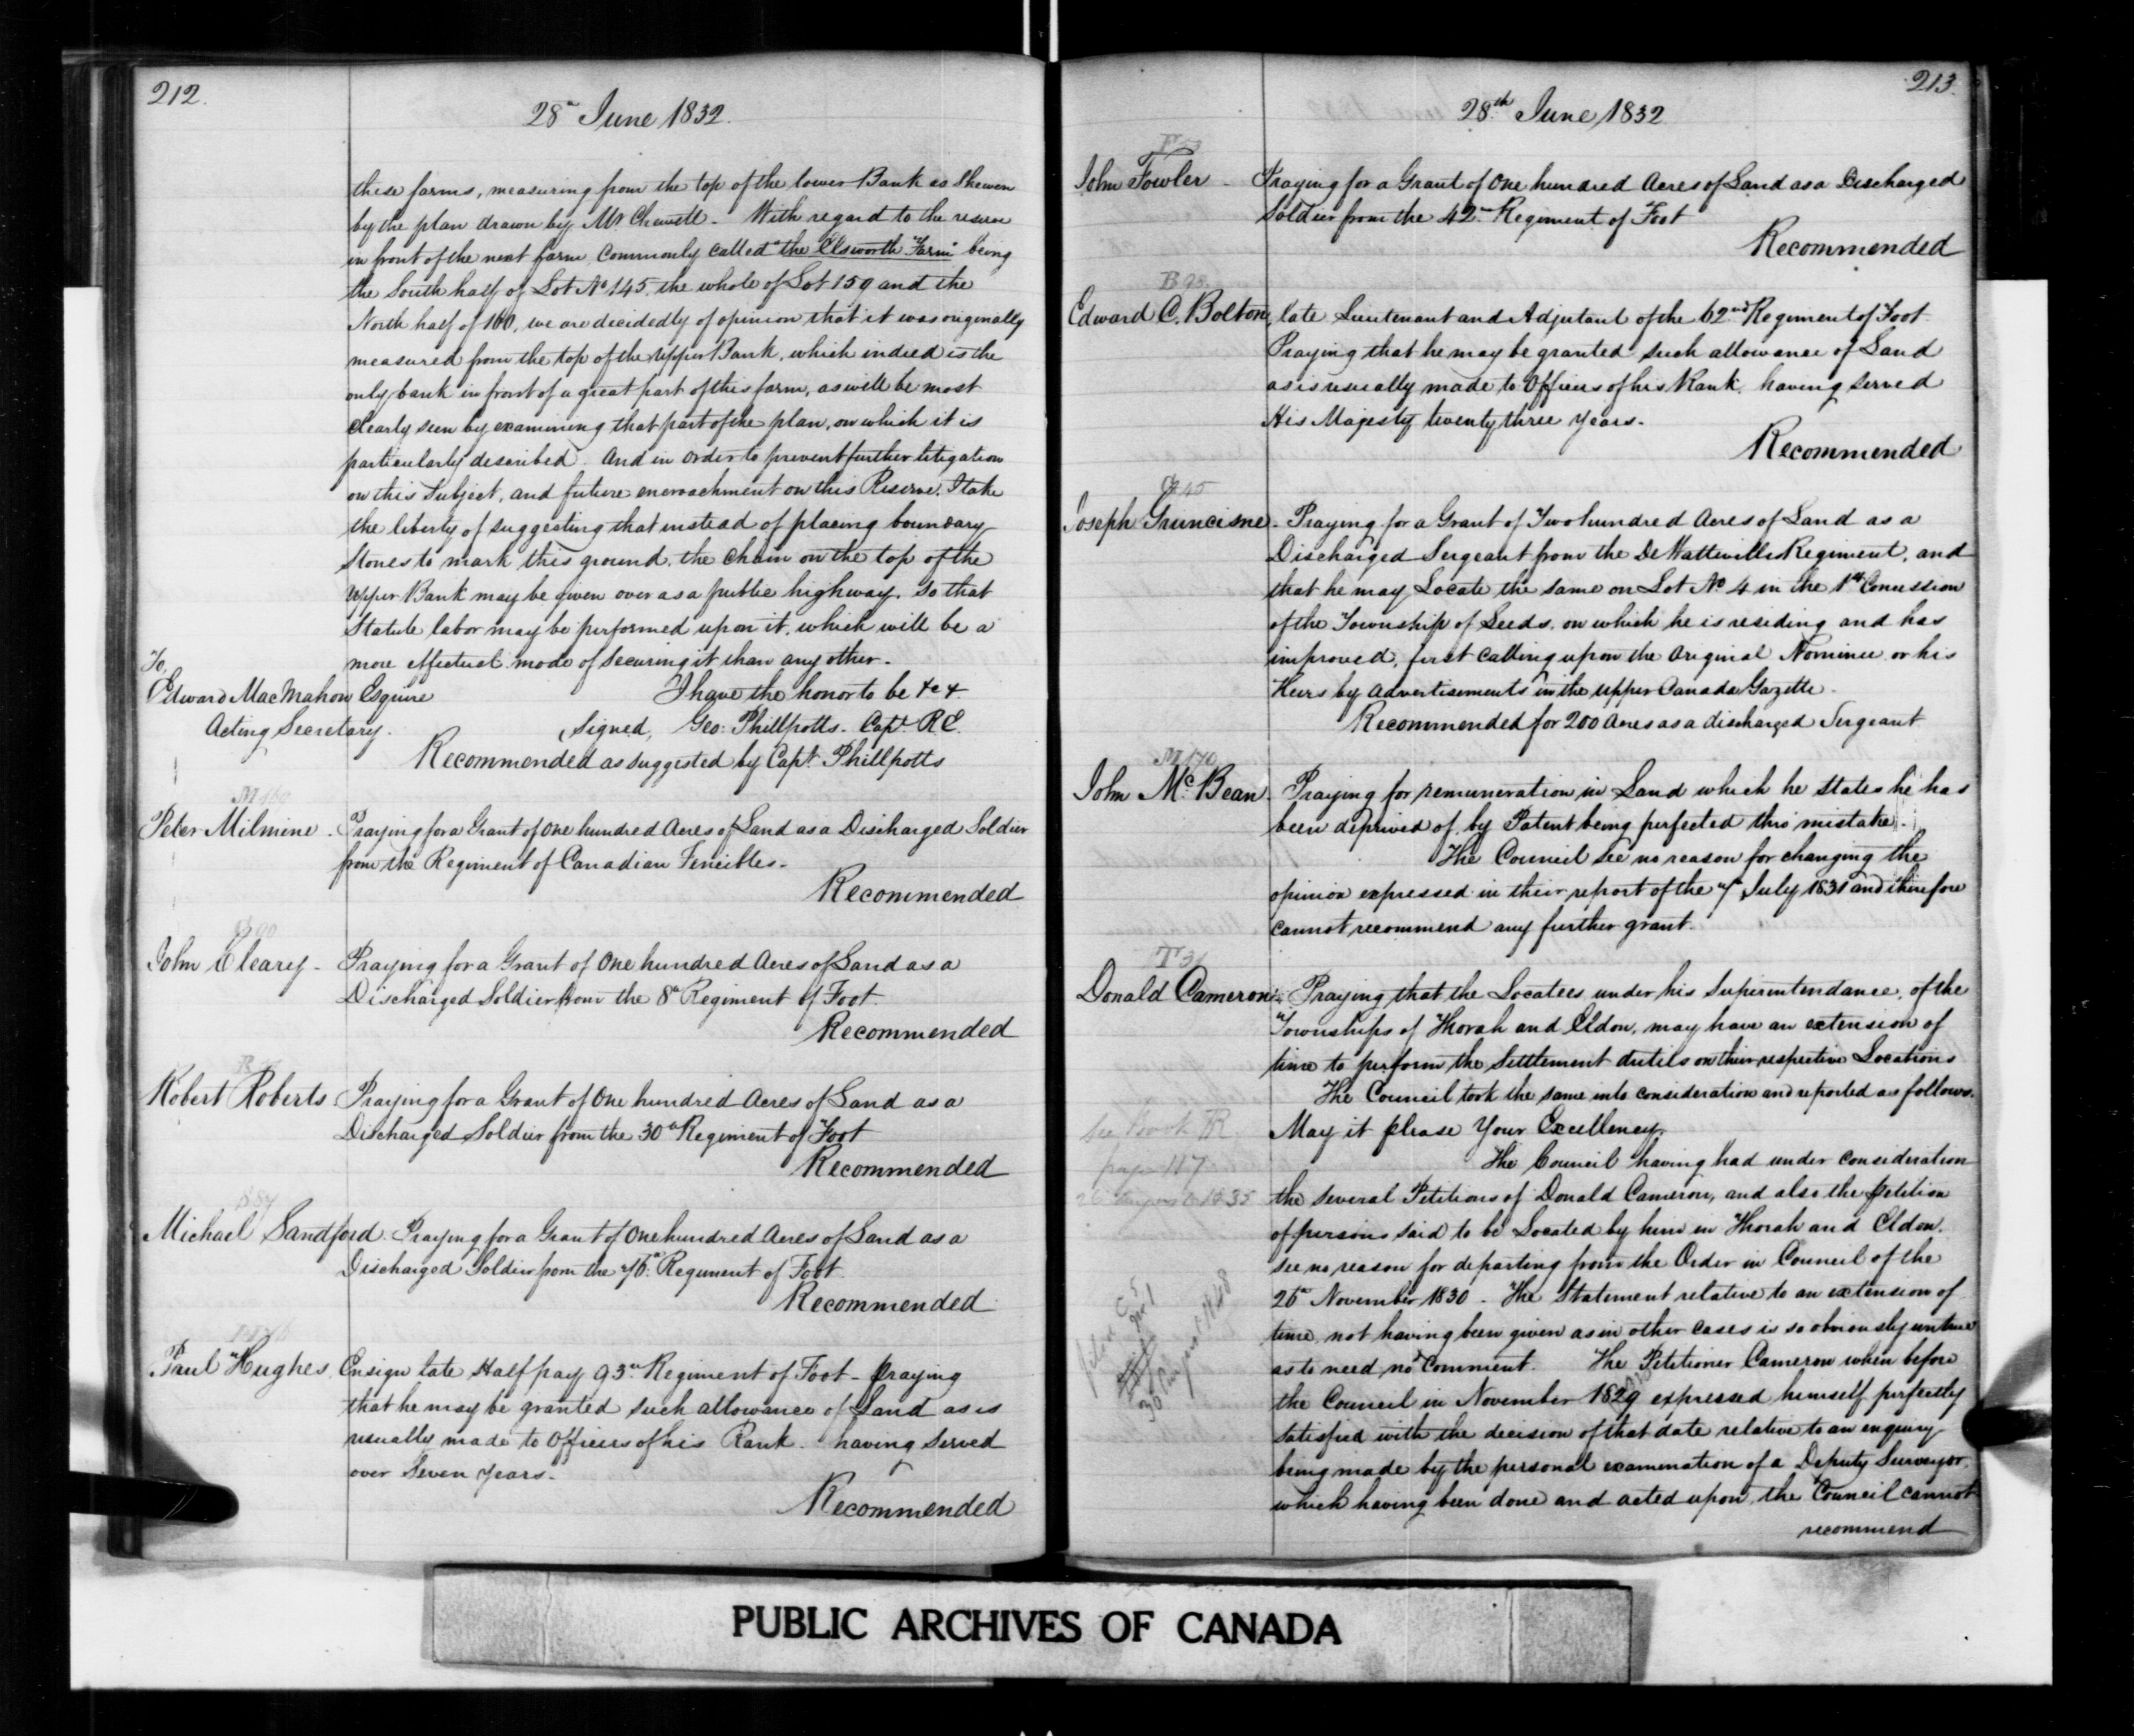 212.
28th June 1832.
these farms, measuring from the top of the lower Bank as Shewn
by the plan drawn by Mr Chewett. With regard to the reserve
in front of the next farm, commonly called "the Elsworth Farm" being
the South half of Lot No 145, the whole of Lot 159 and the
North half of 160, we are decidedly of opinion that it was originally
measured from the top of the Upper Bank, which indeed is the
only bank in front of a great part of this farm, as will be most
Clearly seen by examining that part of the plan, on which it is
particularly described. And in order to prevent further litigation
on this Subject, and future encroachment on this Reserve, I take
the liberty of suggesting that instead of placing boundary
Stones to mark this ground, the Chain on the top of the
Upper Bank may be given over as a public highway, so that
Statute labor may be performed upon it, which will be a
more effectual mode of Securing it than any other.
To,
Edward MacMahon Esquire I have the honor to be &c &
Acting Secretary. (Signed, Geo: Phillpotts. Capt. RE.
Recommended as suggested by Capt. Phillpotts
Peter Milmine. Praying for a Grant of One hundred Acres of Land as a Discharged Soldier
from the Regiment of Canadian Fencibles.
Recommended
John Cleary. Praying for a Grant of One hundred Acres of Land as a
Discharged Soldier from the 8th Regiment of Foot.
Recommended
Robert Roberts Praying for a Grant of One hundred Acres of Land as a
Discharged Soldier from the 30th Regiment of Foot
Recommended
Michael Sandford. Praying for a Grant of One hundred Acres of Land as a
Discharged Soldier from the 76th Regiment of Foot.
Recommended
Paul Hughes, Ensign late Half pay 93rd Regiment of Foot. Praying
that he may be granted such allowance of Land as is
usually made to Officers of his Rank. having served
over Seven Years.
Recommended
213.
28th June 1832
John Fowler. Praying for a Grant of One hundred Acres of Land as a Discharged
Soldier from the 42nd Regiment of Foot
Recommended
B 98.
Edward C. Bolton, late Lieutenant and Adjutant of the 62nd Regiment of Foot.
Praying that he may be granted such allowance of Land
as is usually made to Officers of his Rank. having served
His Majesty twenty three Years.
Recommended
G 45
Joseph Gruncisne. Praying for a Grant of Two hundred Acres of Land as a
Discharged Sergeant from the De Watteville Regiment, and
that he may Locate the same on Lot No 4 in the 1st Concession
of the Township of Leeds, on which he is residing and has
improved, first Calling upon the Original Nominee or his
Heirs by Advertisements in the Upper Canada Gazette.
Recommended for 200 Acres as a discharged Sergeant
M 170
John McBean. Praying for remuneration in Land which he states he has
been deprived of by Patent being perfected thro' mistake.
The Council see no reason for changing the
opinion expressed in their report of the 7th July 1831 and therefore
cannot recommend any further grant.
T 31
Donald Cameron. Praying that the Locatees under his Superintendance, of the
Townships of Thorah and Eldon, may have an extension of
time to perform the Settlement duties on their respective Locations
The Council took the same into consideration and reported as follows.
See Book R May it please Your Excellency,
page 117 The Council having had under consideration
1835 the several Petitions of Donald Cameron, and also the petition
of persons said to be Located by him in Thorah and Eldon,
see no reason for departing from the Order in Council of the
26th November 1830. The Statement relative to an extension of
time not having been given as in other cases is so obviously untrue
as to need no Comment. The Petitioner Cameron when before
the Council in November 1829 expressed himself perfectly
satisfied with the decision of that date relative to an enquiry
being made by the personal examination of a Deputy Surveyor,
which having been done and acted upon, the Council cannot
recommend
PUBLIC ARCHIVES OF CANADA